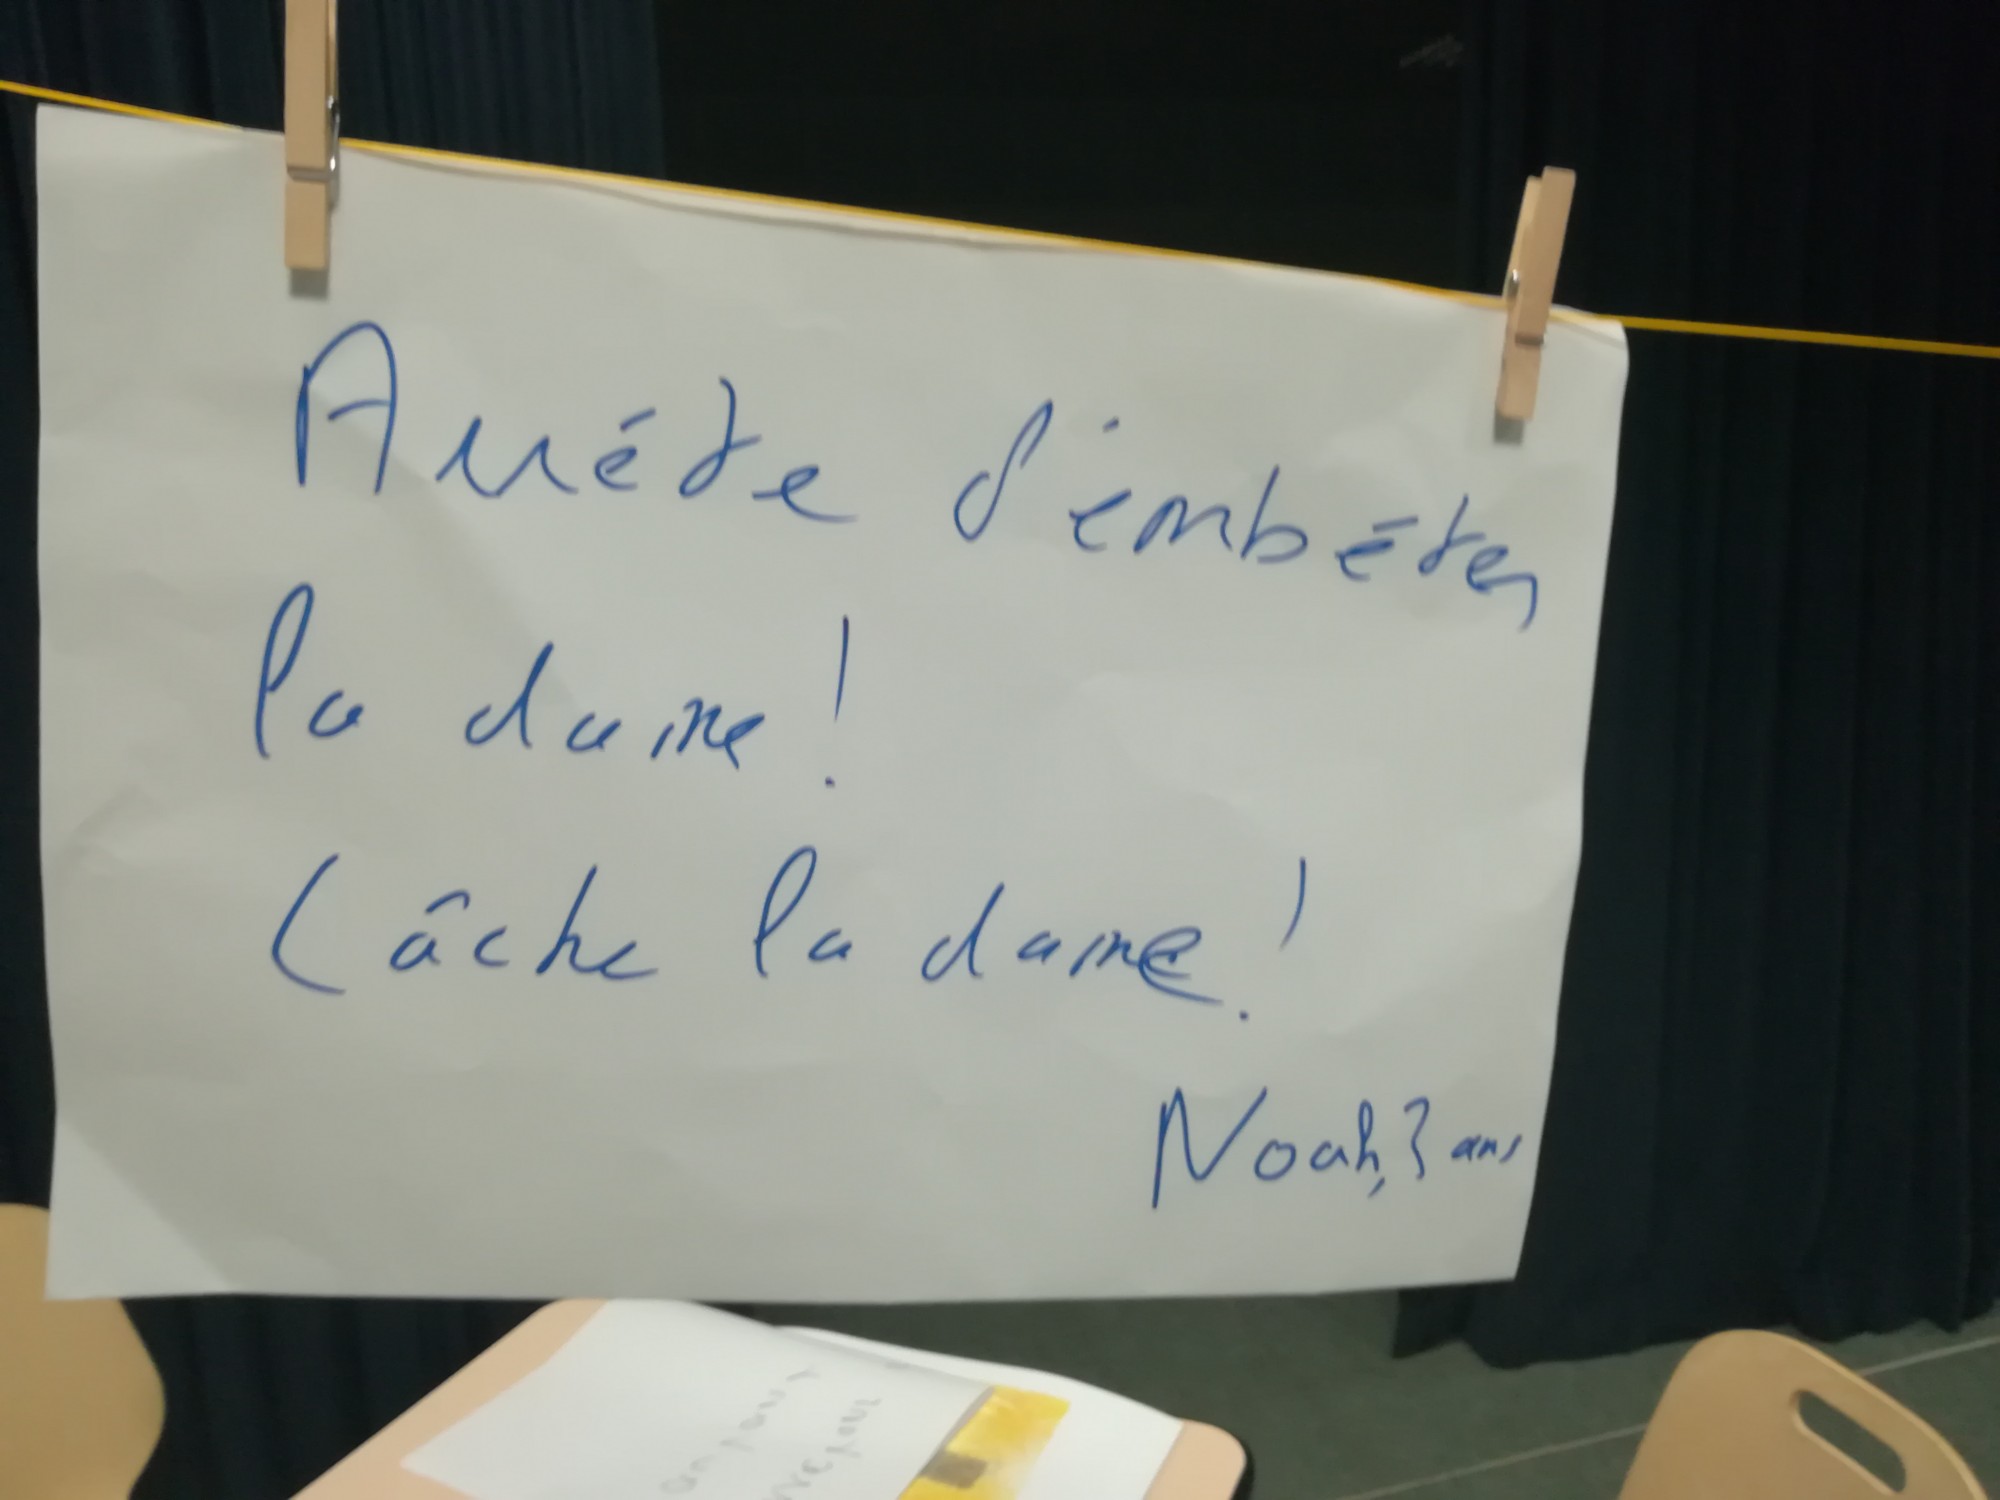 Arrête d'embêter
la dame!
Lâche la dame!
Noah, 3 ans